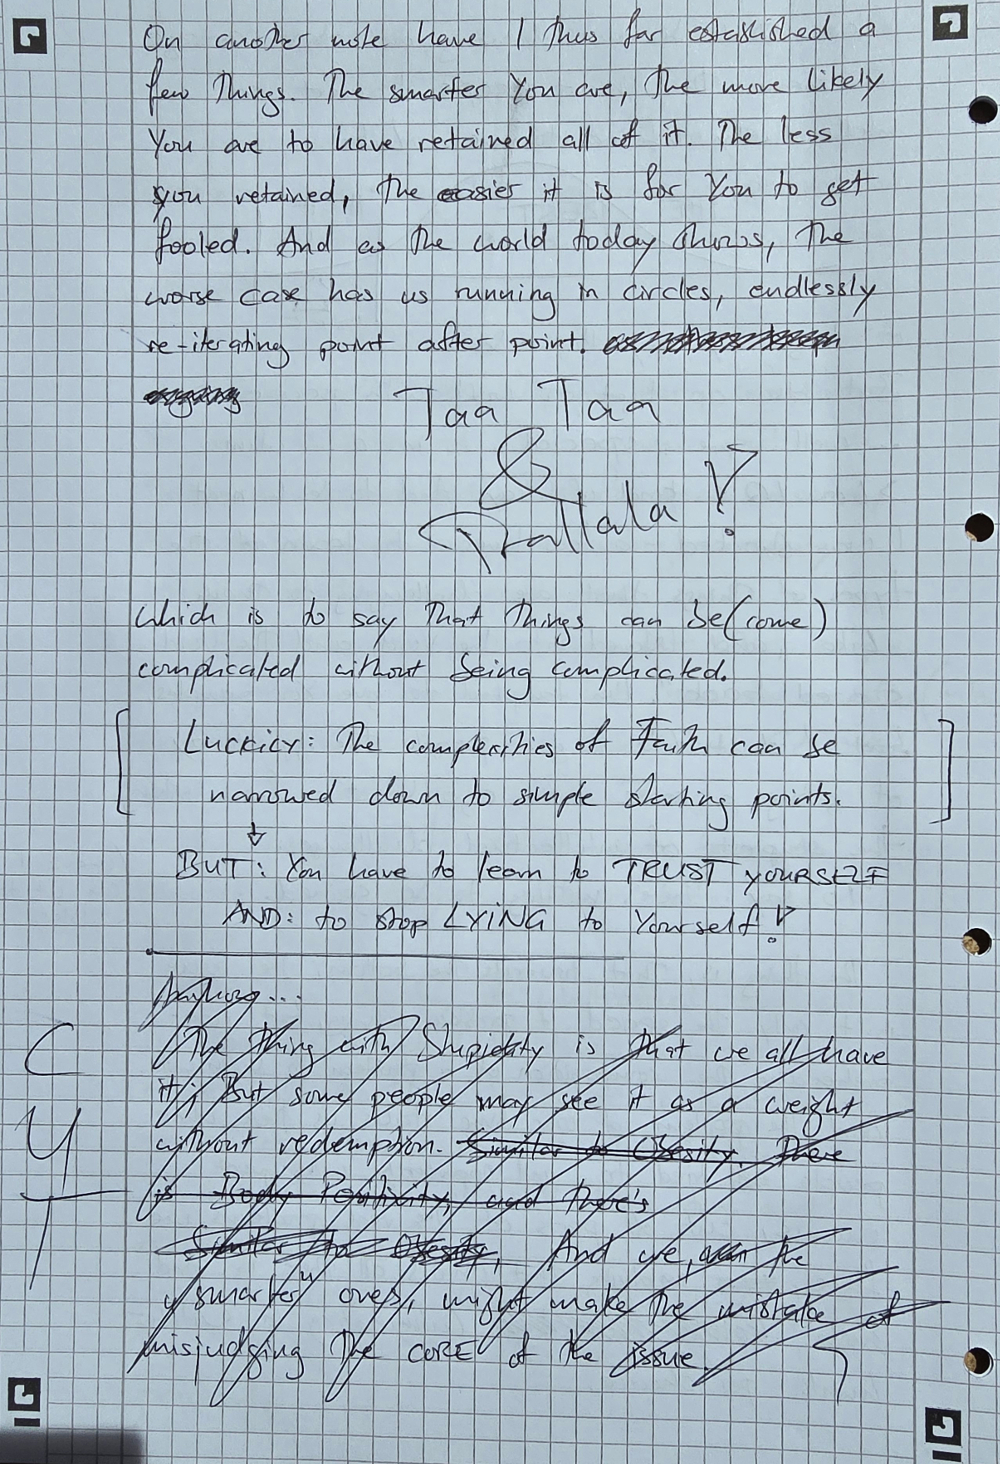 On another note have I thus far established a
few Things. The smarter You are, The more likely
You are to have retained all of it. The less
you retained, The easier it is for You to get
fooled. And as the world today shows, The
worse case has us running in circles, endlessly
re-iterating point after point.
Taa Taa
&
Trallala !
which is to say That things can be(come)
complicated without being complicated.
[ Luckily: The complexities of Faith can be
narrowed down to simple starting points. ]
↓
BUT: You have to learn to TRUST YOURSELF
AND: to stop LYING to Yourself!
Anyhow...
The thing with Stupidity is that we all have
it; But some people may see it as a weight
without redemption. Similar to Obesity. There
is Body Positivity, and there's
Similar to Obesity, And we, the
"smarter" ones, might make the mistake of
misjudging The CORE of the issue.